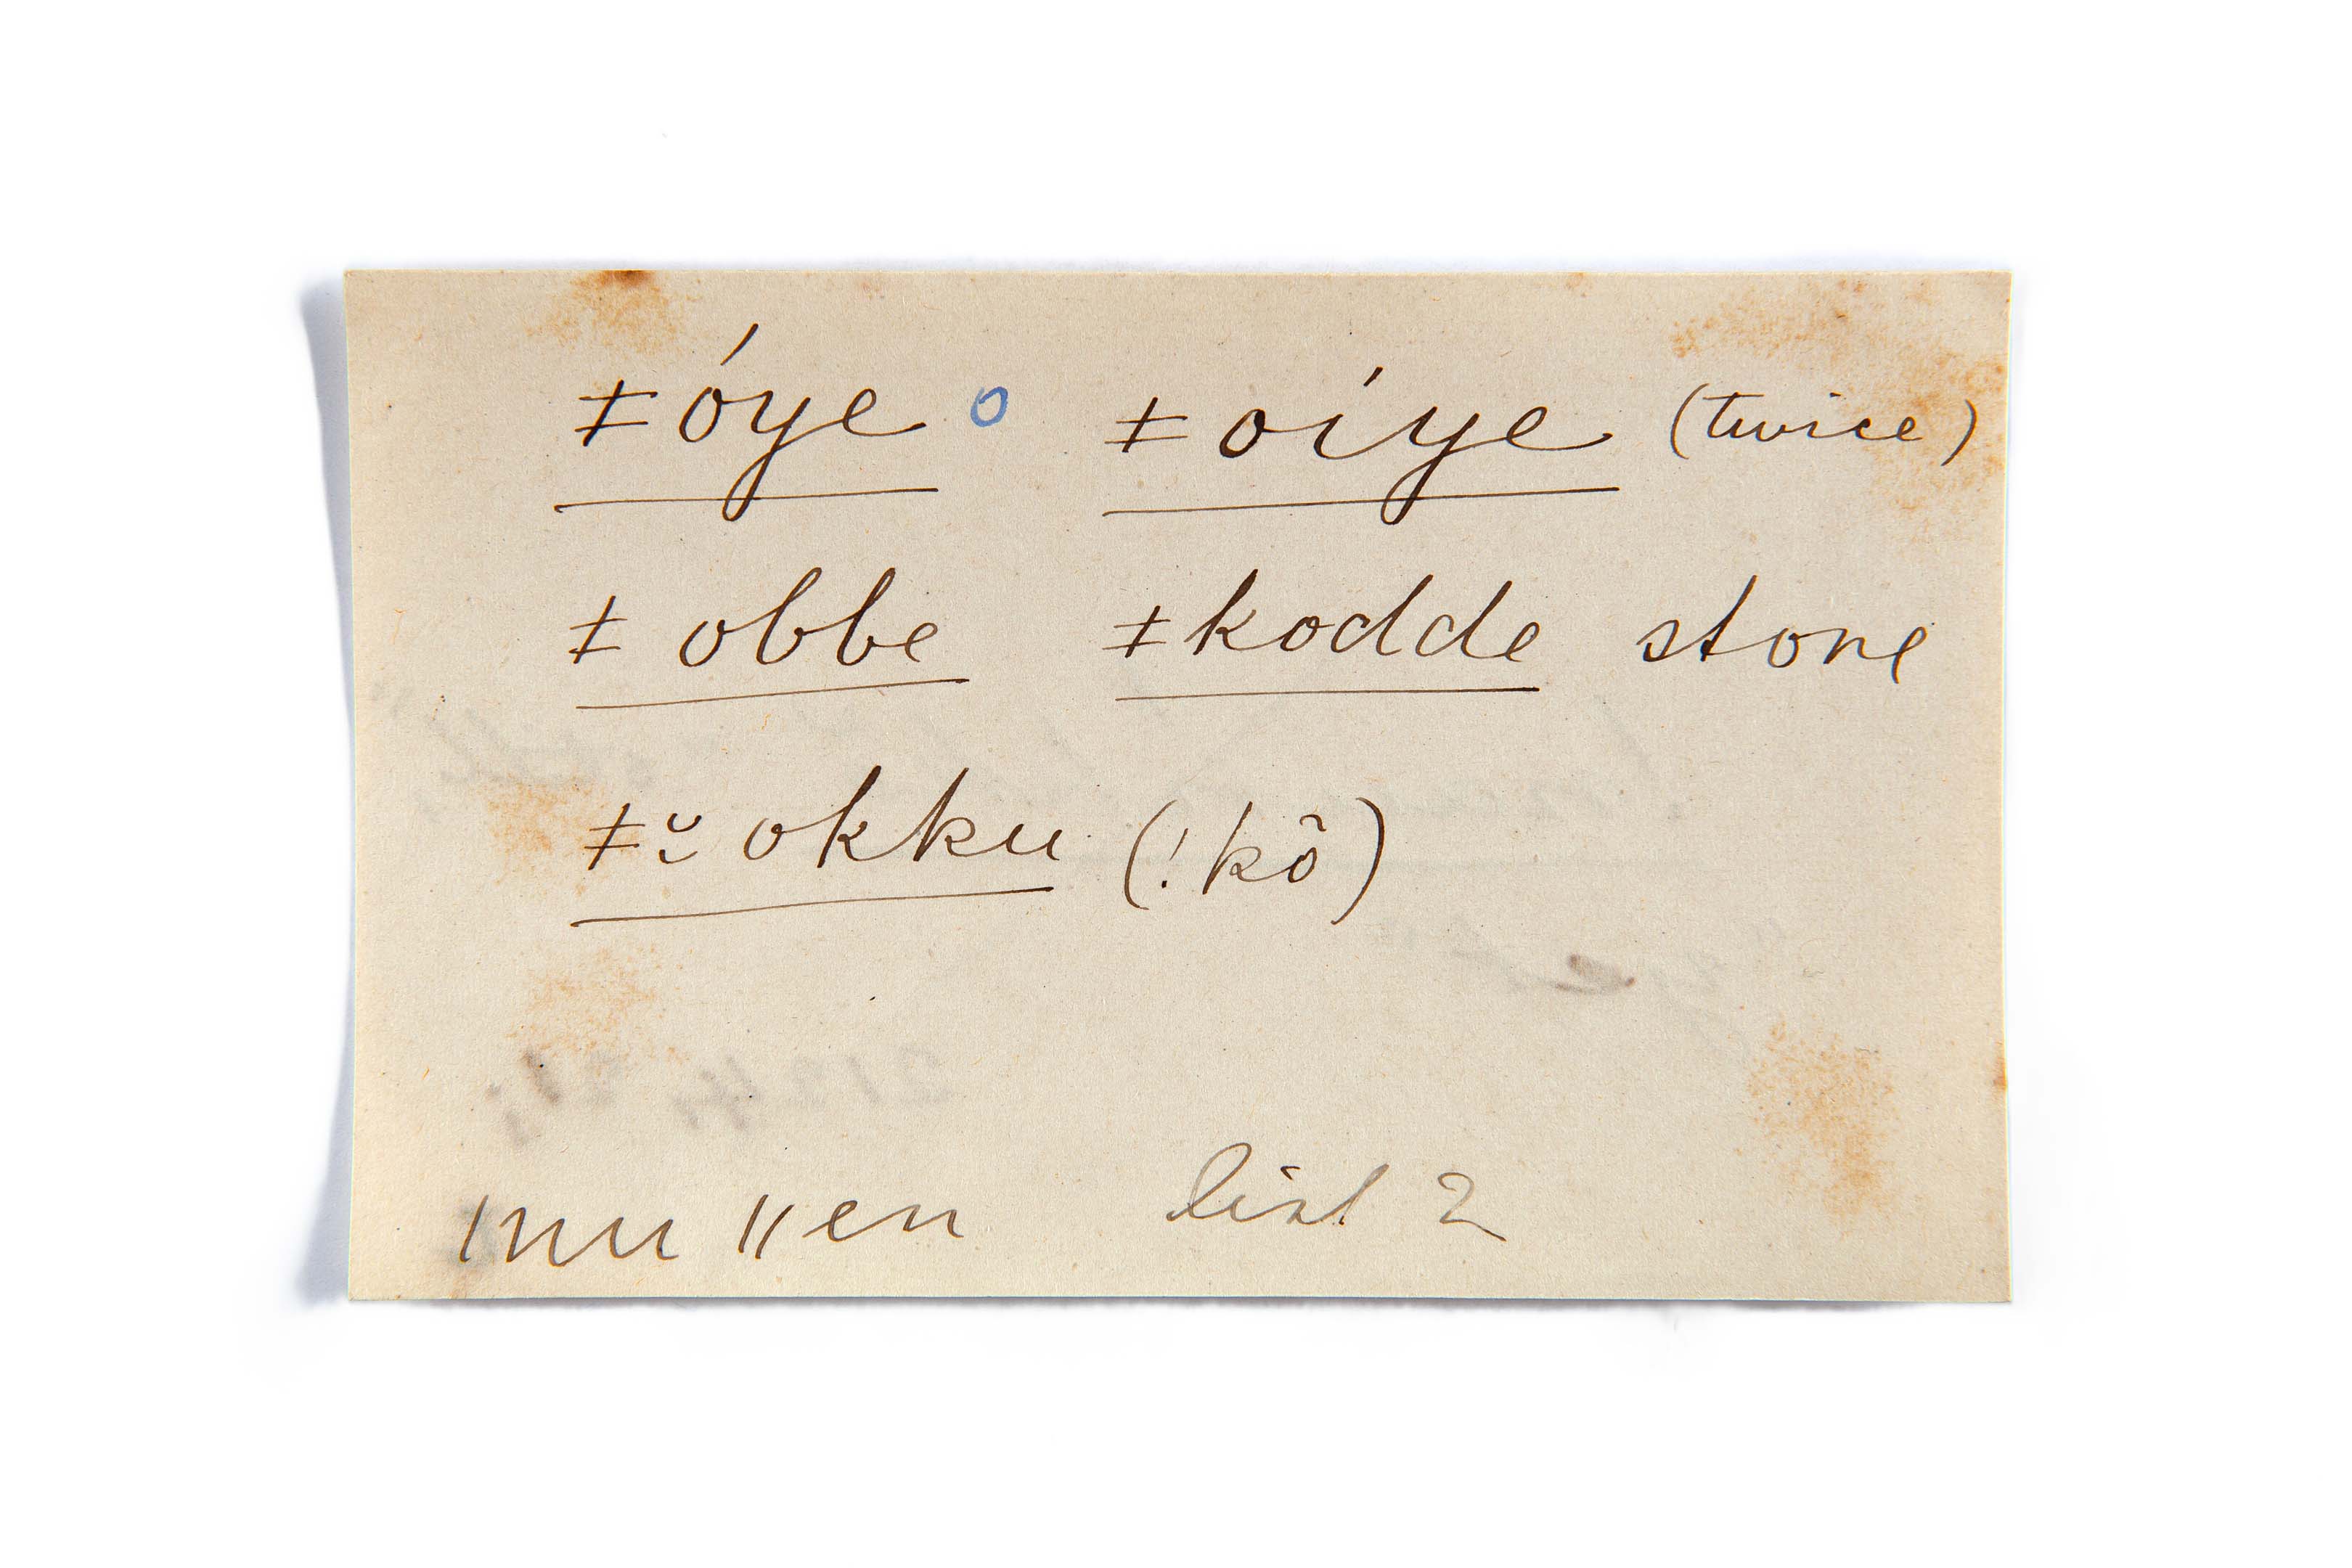 ǂóye o ǂoíye (twice)
ǂ obbe ǂkodde stone
ǂ ̮̆ okku (!kõ̂)
ǀnu ǁen list 2